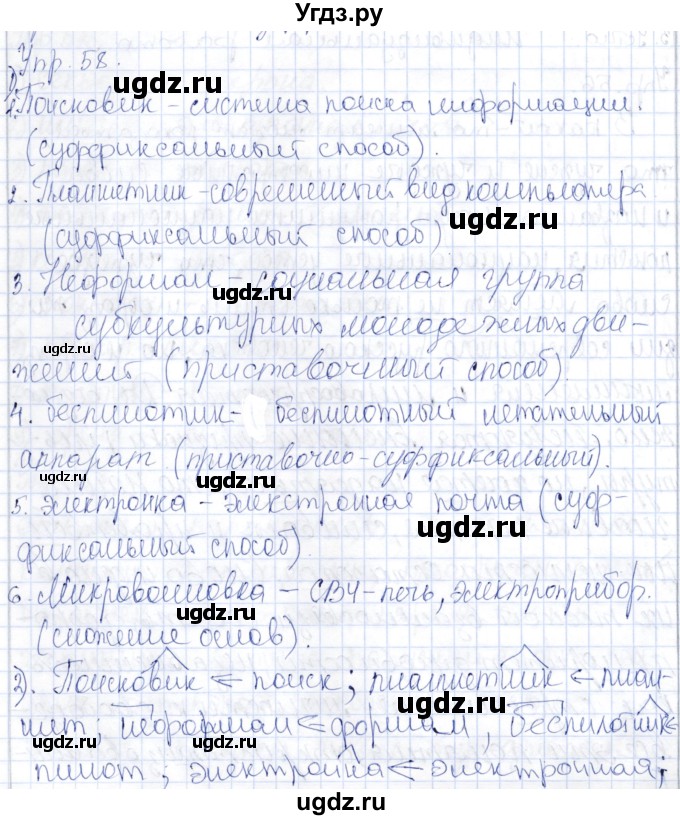 Угдз.ру
Упр. 58.
1)
1. Поисковик – система поиска информации.
(суффиксальный способ).
ugdz.ru
2. Планшетник – современный вид компьютера
ugdz.ru
(суффиксальный способ)
3. Неформал – социальная группа
ugdz.ru
субкультурных молодежных дви-
ugdz.ru
ugdz.ru
жений (приставочный способ).
4. беспилотник – беспилотный летательный
аппарат (приставочно-суффиксальный).
ugdz.ru
ugdz.ru
5. Электронка – элекстронная почта (суф-
ugdz.ru
фиксальный способ).
6. Микроволновка – СВЧ-печь, электроприбор.
ugdz.ru
(сложение основ).
2). Поисковик ← поиск; планшетник ← план-
ugdz.ru
шет; неформал ← формал, беспилотник ←
ugdz.ru
ugdz.ru
пилот; электронка ← электронная;
ugdz.ru